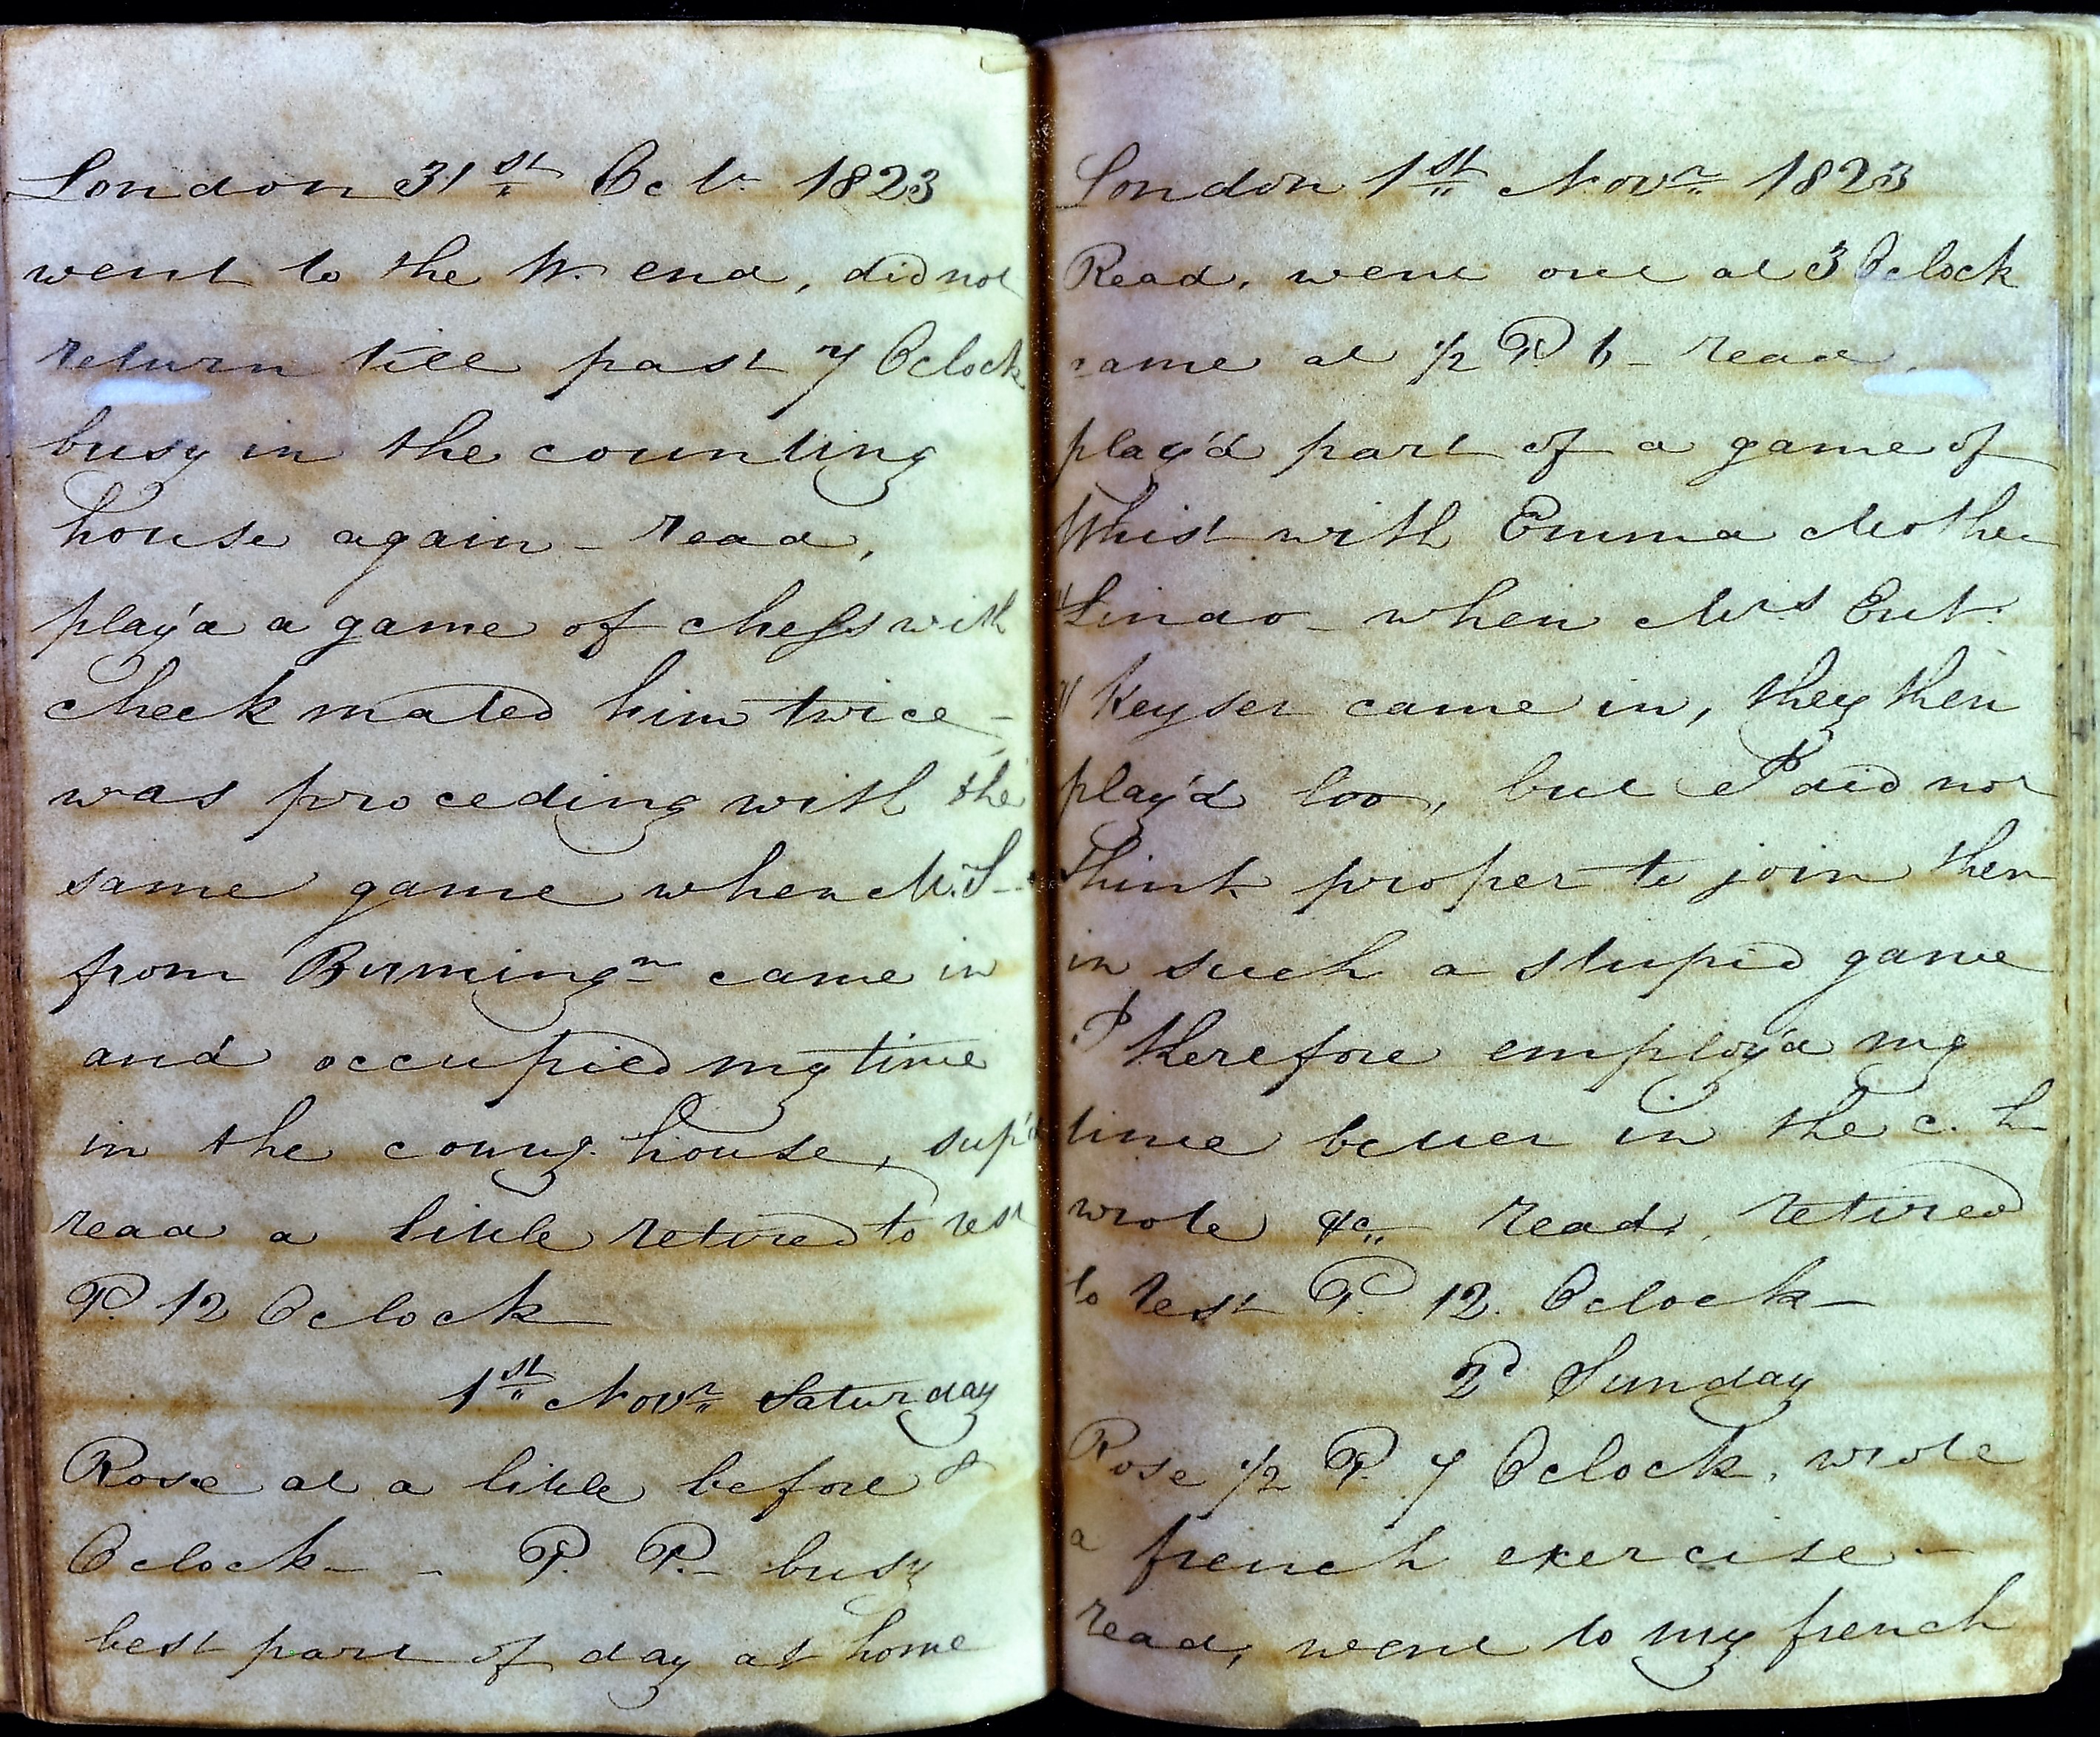 London 31st Octr 1823
went to the W. end, did not
return till past 7 Oclock
busy in the counting
house again - read,
play'd a game of chess with
check mated him twice -
was proceding with the
same game when M. S-
from Birmingm came in
and occupied my time
in the countg. house, sup'd
read a little retired to rest
P. 12 Oclock
1st Novr Saturday
Rose at a little before 8
Oclock - - P. P. - busy
best part of day at home
London 1st Novr 1823
Read, went out at 3 Oclock
came at 1/2 P. 6 - read,
play'd part of a game of
Whist with Emma Mother
Lindo - when Mrs
Keyser came in, they then
play'd loo, but I did not
think proper to join them
in such a stupid game
I therefore employ'd my
time better in the c. h-
wrote &c read, retired
to rest P. 12. Oclock -
2d Sunday
Rose 1/2 P. 7 Oclock, wrote
a french exercise -
read, went to my french